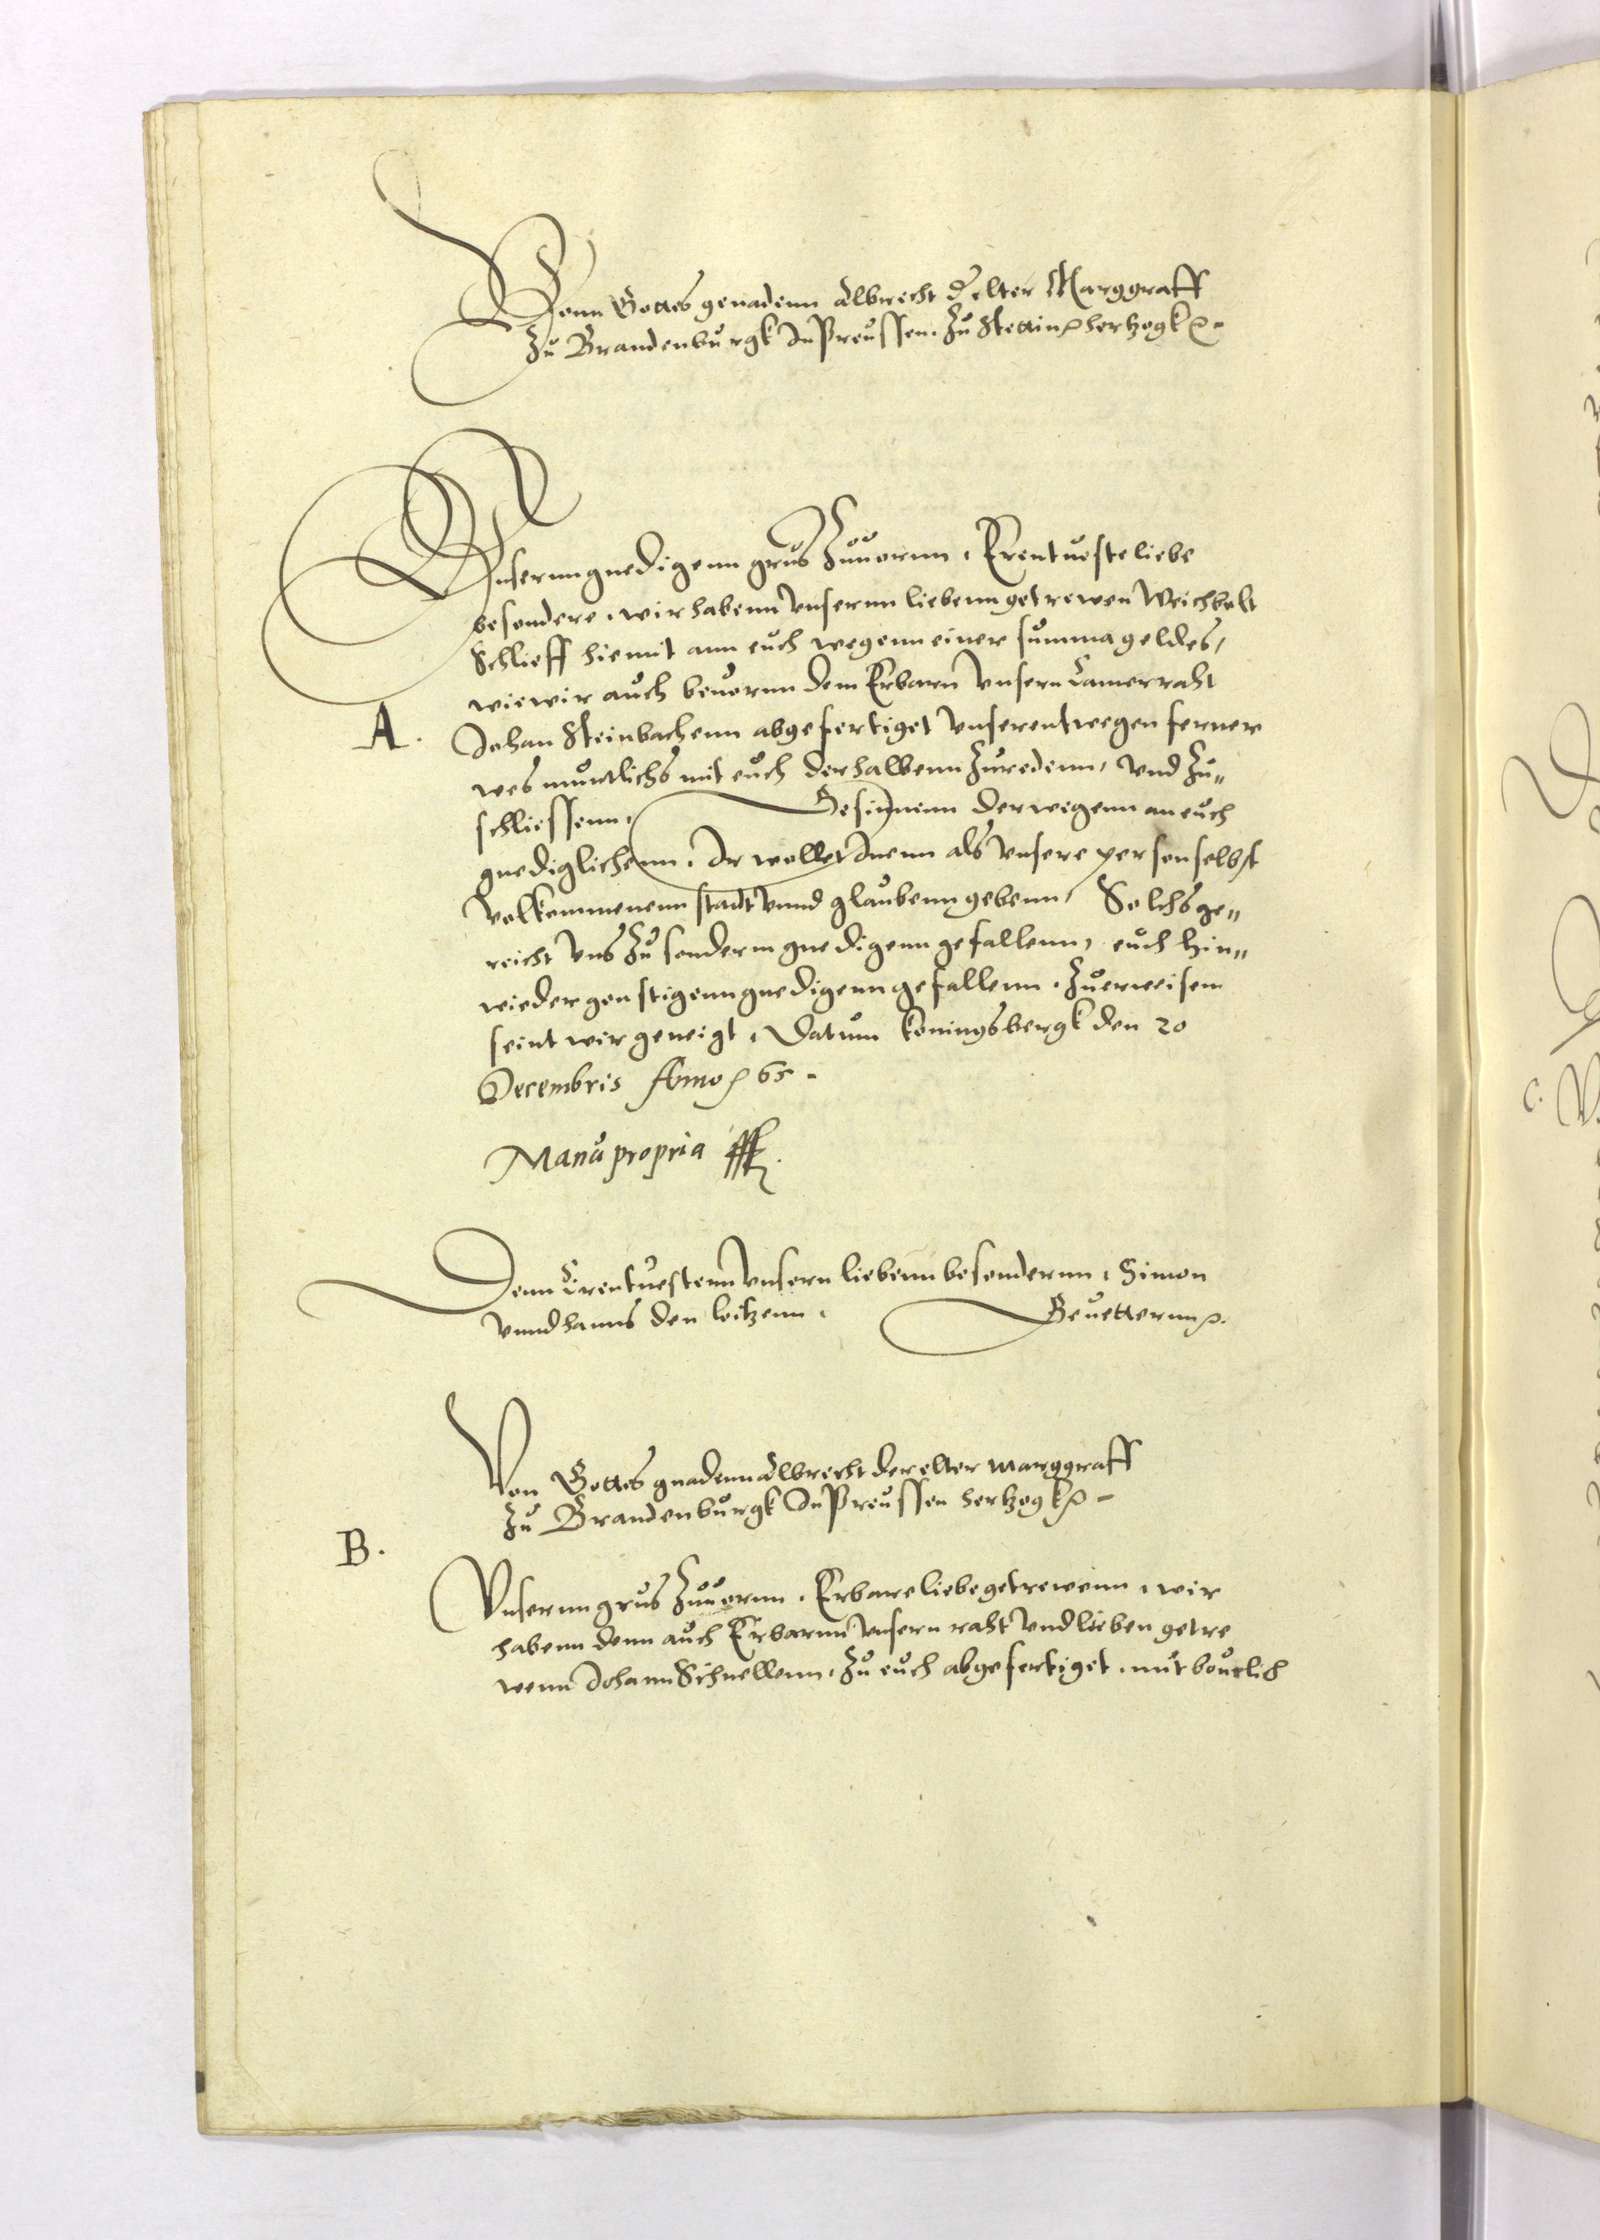 Vonn Gottes genadenn Albrecht d elter Marggraff
Zu Brandenburgk In Preussen. Zu Stettin ꝛc hertzogk ꝛc -
Vnsernn gnedigenn grus Zuuornn. Erentueste liebe
besondere. wir habenn vnsernn liebenn getrewen Weichbolt
Schlieff hiemit ann euch wegenn einer summa geldes,
wie wir auch beuornn dem Erbarn vnsern Camerraht
A.
Johan Steinbachenn abgefertiget vnserentwegen ferner
wes muntlichs mit euch derhalbenn Zuredenn, vnd Zu„
schliessenn, Gesinnenn derwegenn an euch
gnediglichenn. Ir wollet Inenn als vnsere person selbst
volkommenenn stadt vnnd glaubenn gebenn, Solchs ge„
reicht vns Zu sonderm gnedigenn gefallenn, euch hin„
wieder gonstigenn gnedigenn gefallenn. Zuerweisenn
seint wir geneigt. Datum Konningsbergk den 20
Decembris Anno ꝛc 65 -
Manu propria
Denn Erentuestenn vnsern liebenn besondernn. Simon
vnnd hanns den loitzenn. Geuetternn ꝛc.
Von Gottes gnadenn Albrecht der elter marggraff
Zu Brandenburgk In Preussen hertzogk ꝛc -
B.
Vnsernn grus Zuuornn. Erbare liebe getrewenn. wir
habenn denn auch Erbarnn vnsern raht vnd lieben getre
wenn Johann Schnellenn. Zu euch abgefertiget. mit